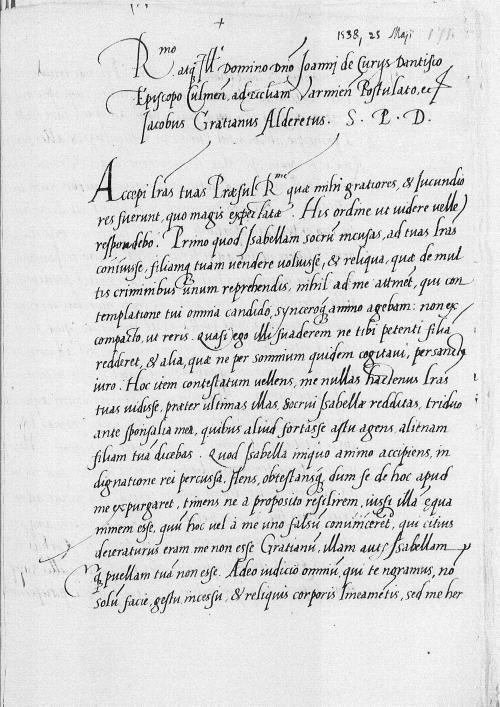 +
1538, 25 Maji 171.
R.mo atq. Ill. Domino Dno Joanni de Curys Dantisco
Episcopo Culmen, ad eccliam Varmien Postulato, ec
Jacobus Gratianus Alderetus. S. P. D.
Accepi lras tuas Praesul R.me quae mihi gratiores, & Iucundio
res fuerunt, quo magis expectatae. His ordine ut videre velle
respondebo. Primo quod Isabellam socru incusas, ad tuas lras
coniuisse, filiamq. tuam vendere voluisse, & reliqua, quae de mul
tis criminibus unum reprehendis, nihil ad me attinet, qui con
templatione tui omnia candido, synceroq. animo agebam: non ex
compacto, ut reris. quasi ego illi suaderem ne tibi petenti filia
redderet, & alia, quae ne per somnium quidem cogitavi, per sancta
iuro. Hoc item contestatum vellens, me nullas hactenus lras
tuas vidisse, praeter ultimas illas, socrui Isabellae redditas, triduo
ante sponsalia mea, quibus aliud fortasse astu agens, alienam
filiam tua dicebas. Quod Isabella iniquo animo accipiens, in
dignatione rei percussa, flens, obtestansq. dum se de hoc apud
me expurgaret, timens ne a proposito resilirem, iussi illa equa
nimem esse, quu hoc vel à me uno falsu convinceret, qui citius
deieraturus eram me non esse Gratianu, illam aut Isabellam
q. puellam tua non esse. Adeo iudicio omniu, qui te noramus, no
solu facie, gestu, incessu, & reliquis corporis lineametis, sed me her